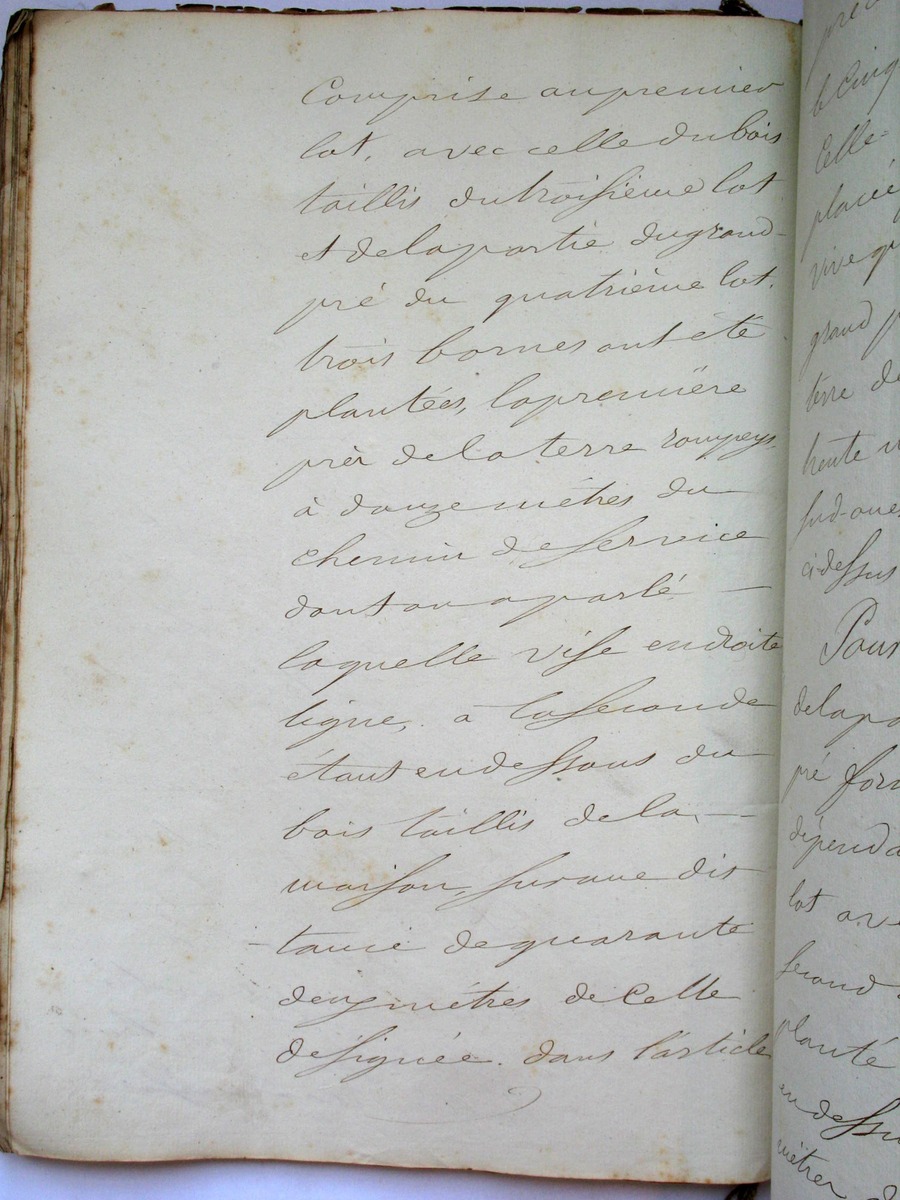 Comprise au premier
lot, avec celle du bois
taillis du troisième lot
et de la partie du grand
pré du quatrième lot.
trois bornes ont été
plantées, la première
près de la terre rompeys
à douze mètres du
chemin de service
dont on a parlé —
laquelle vise en droite
ligne, à la seconde
étant en dessous du
bois taillis de la —
maison, sur une dis
-tance de quarante
deux mètres de celle
désignée dans l'article
préc
le cinq
Celle-
placée
vive qu
grand p
terre de
trente m
sud-oues
ci-dessus
Pour
de la pa
pré for
dépenda
lot ave
second
planté
en dessu
mètres d